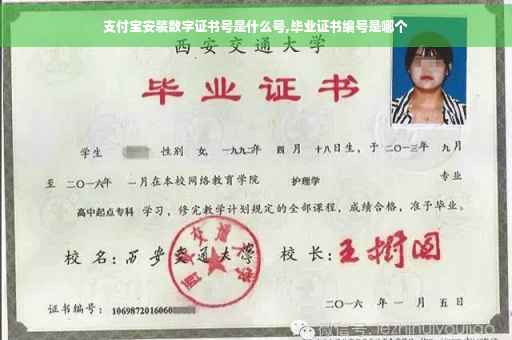 支付宝安装数字证书号是什么号,毕业证书编号是哪个
西安交通大学
毕业证书
学生 性别 女, 一九九二年 四月 十八日生, 于 二〇一三年 九月
至 二〇一六年 一月在本校网络教育学院 护理学 专业
高中起点专科 学习, 修完教学计划规定的全部课程, 成绩合格, 准予毕业。
校名: 西安交通大学 校长: 王树国
西安交通大学
证书编号: 1069872016060
二〇一六年 一月 五日
微信号: jezhihuiyoujiao